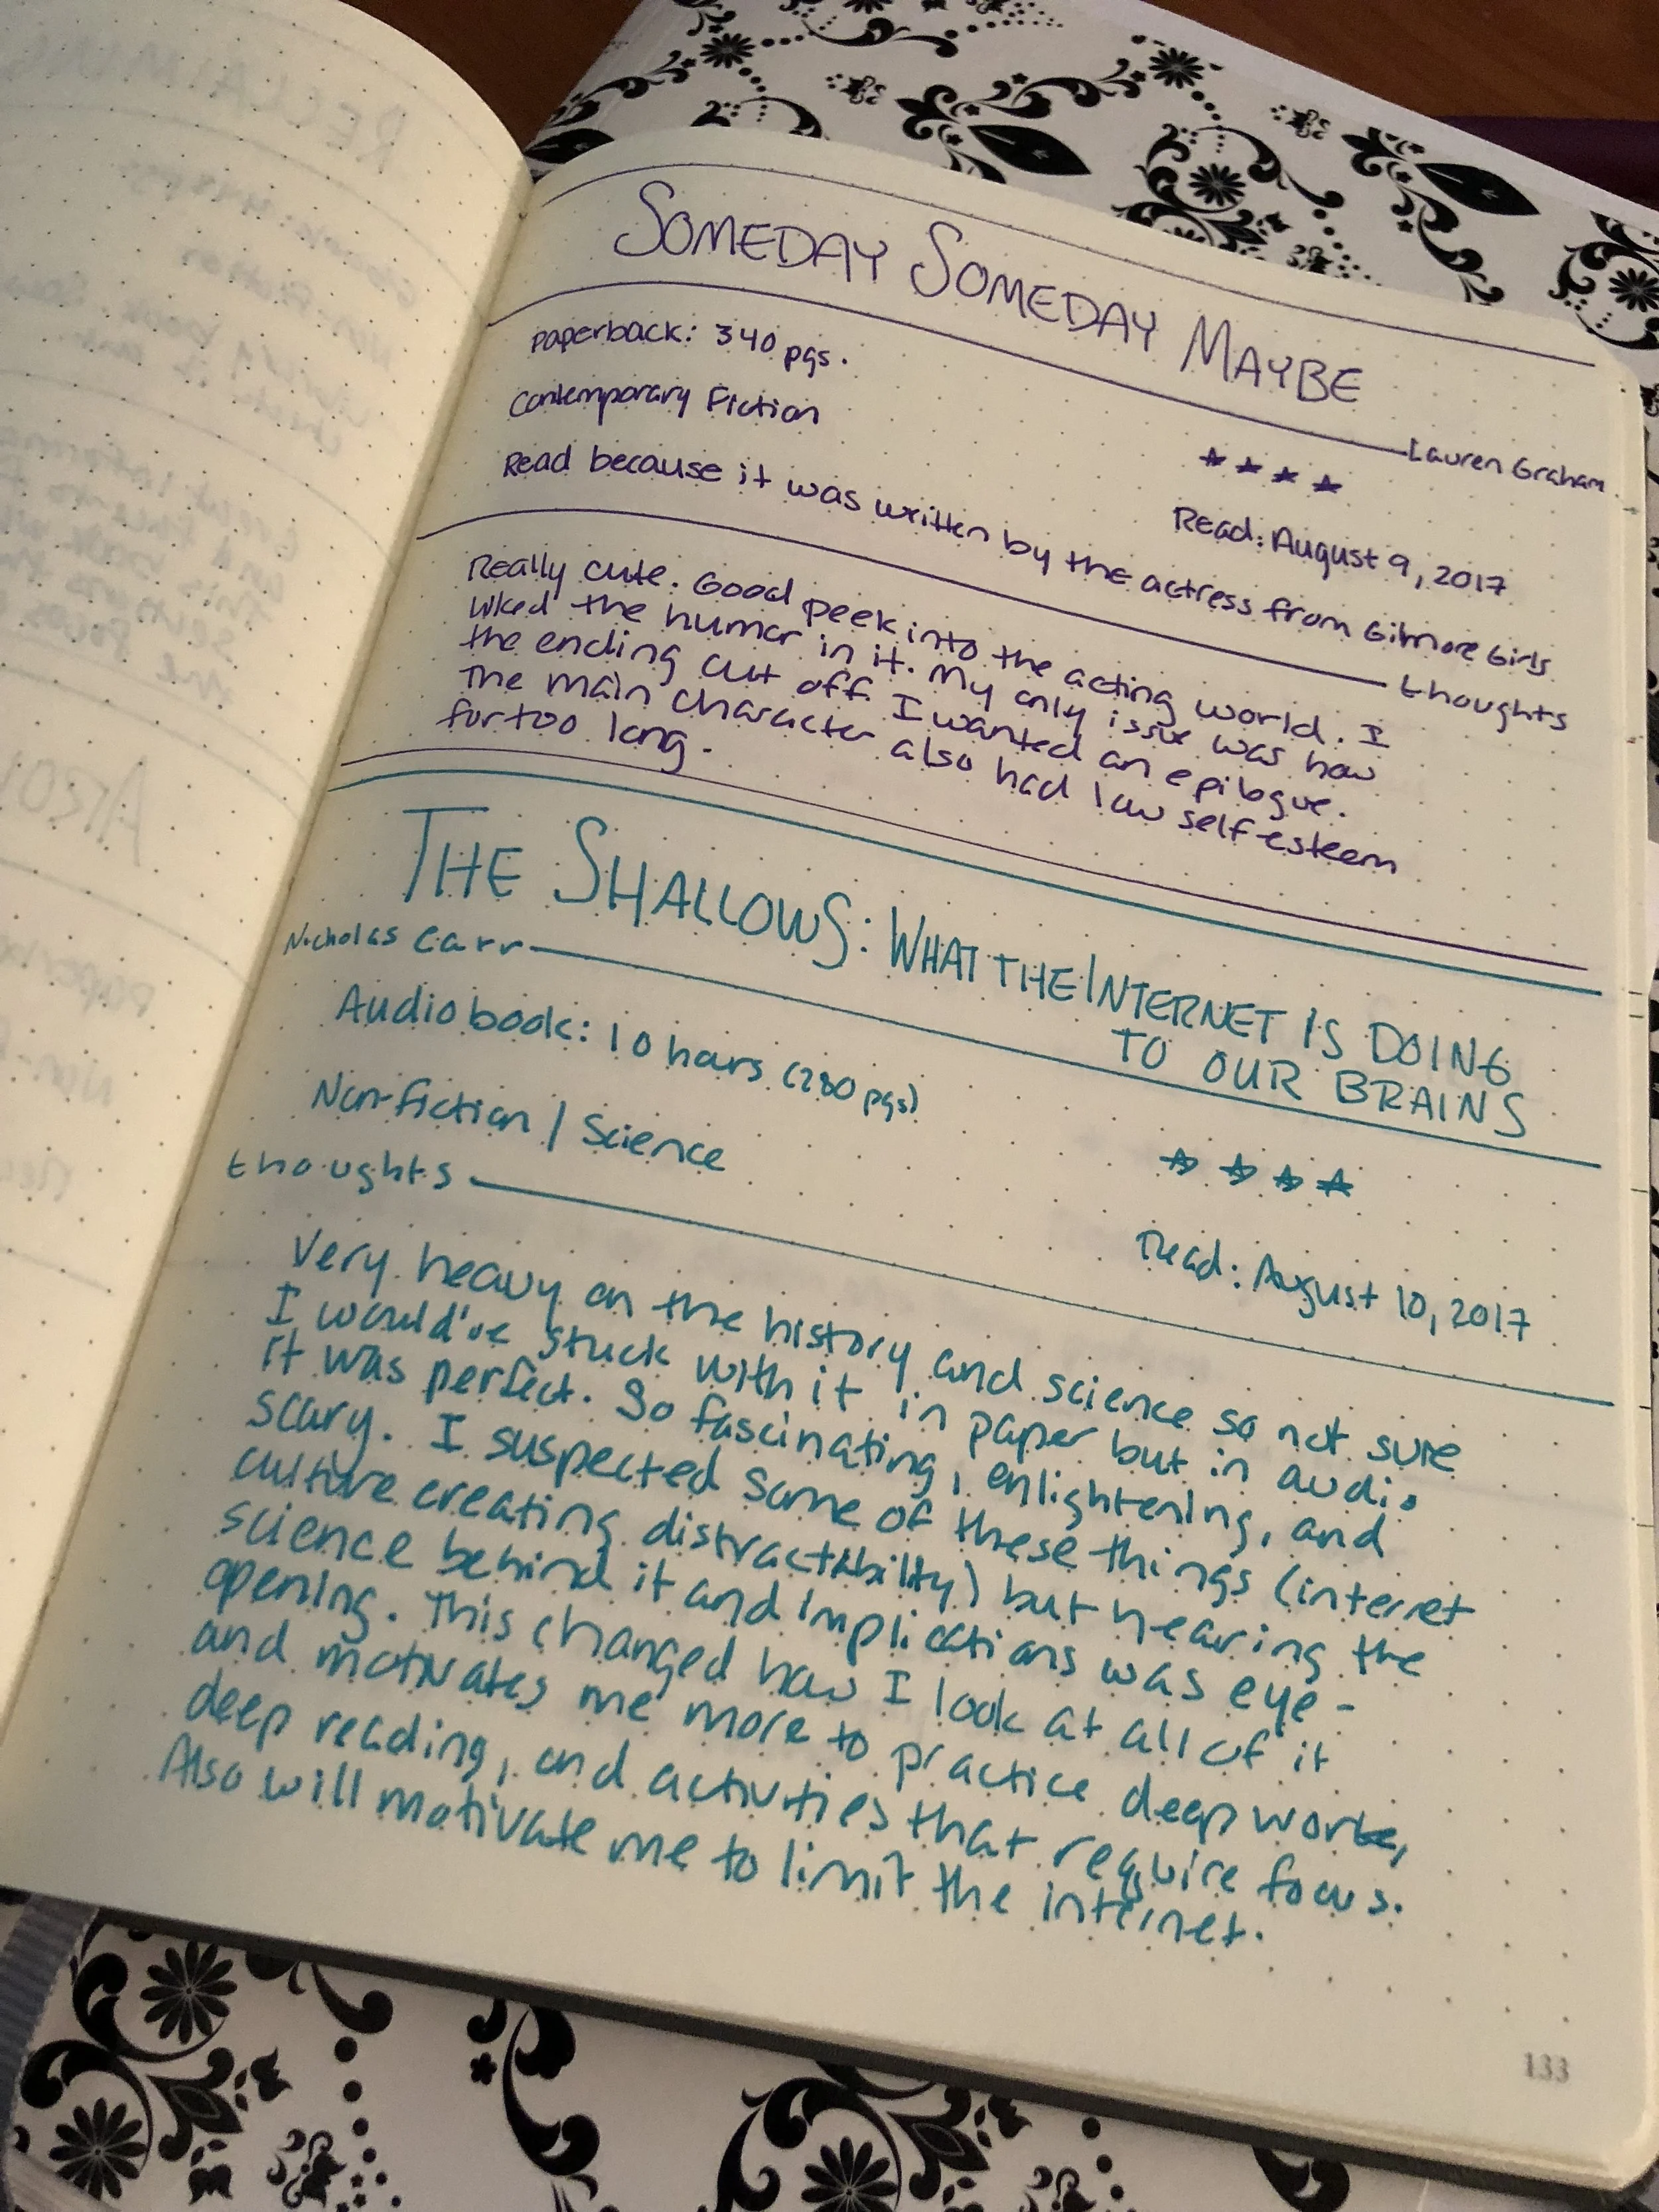 SOMEDAY SOMEDAY MAYBE
Lauren Graham
Paperback: 340 pgs.
★ ★ ★ ★
Contemporary Fiction
Read: August 9, 2017
Read because it was written by the actress from Gilmore Girls
thoughts
Really cute. Good peek into the acting world. I
liked the humor in it. My only issue was how
the ending cut off. I wanted an epilogue.
The main character also had low self-esteem
for too long.
THE SHALLOWS: WHAT THE INTERNET IS DOING
TO OUR BRAINS
Nicholas Carr
Audiobook: 10 hours (280 pgs)
★ ★ ★ ★
Non-fiction / Science
Read: August 10, 2017
thoughts
Very heavy on the history and science so not sure
I would've stuck with it in paper but in audio
it was perfect. So fascinating, enlightening, and
scary. I suspected some of these things (internet
culture creating distractability) but hearing the
science behind it and implications was eye-
opening. This changed how I look at all of it
and motivates me more to practice deep work,
deep reading, and activities that require focus.
Also will motivate me to limit the internet.
133